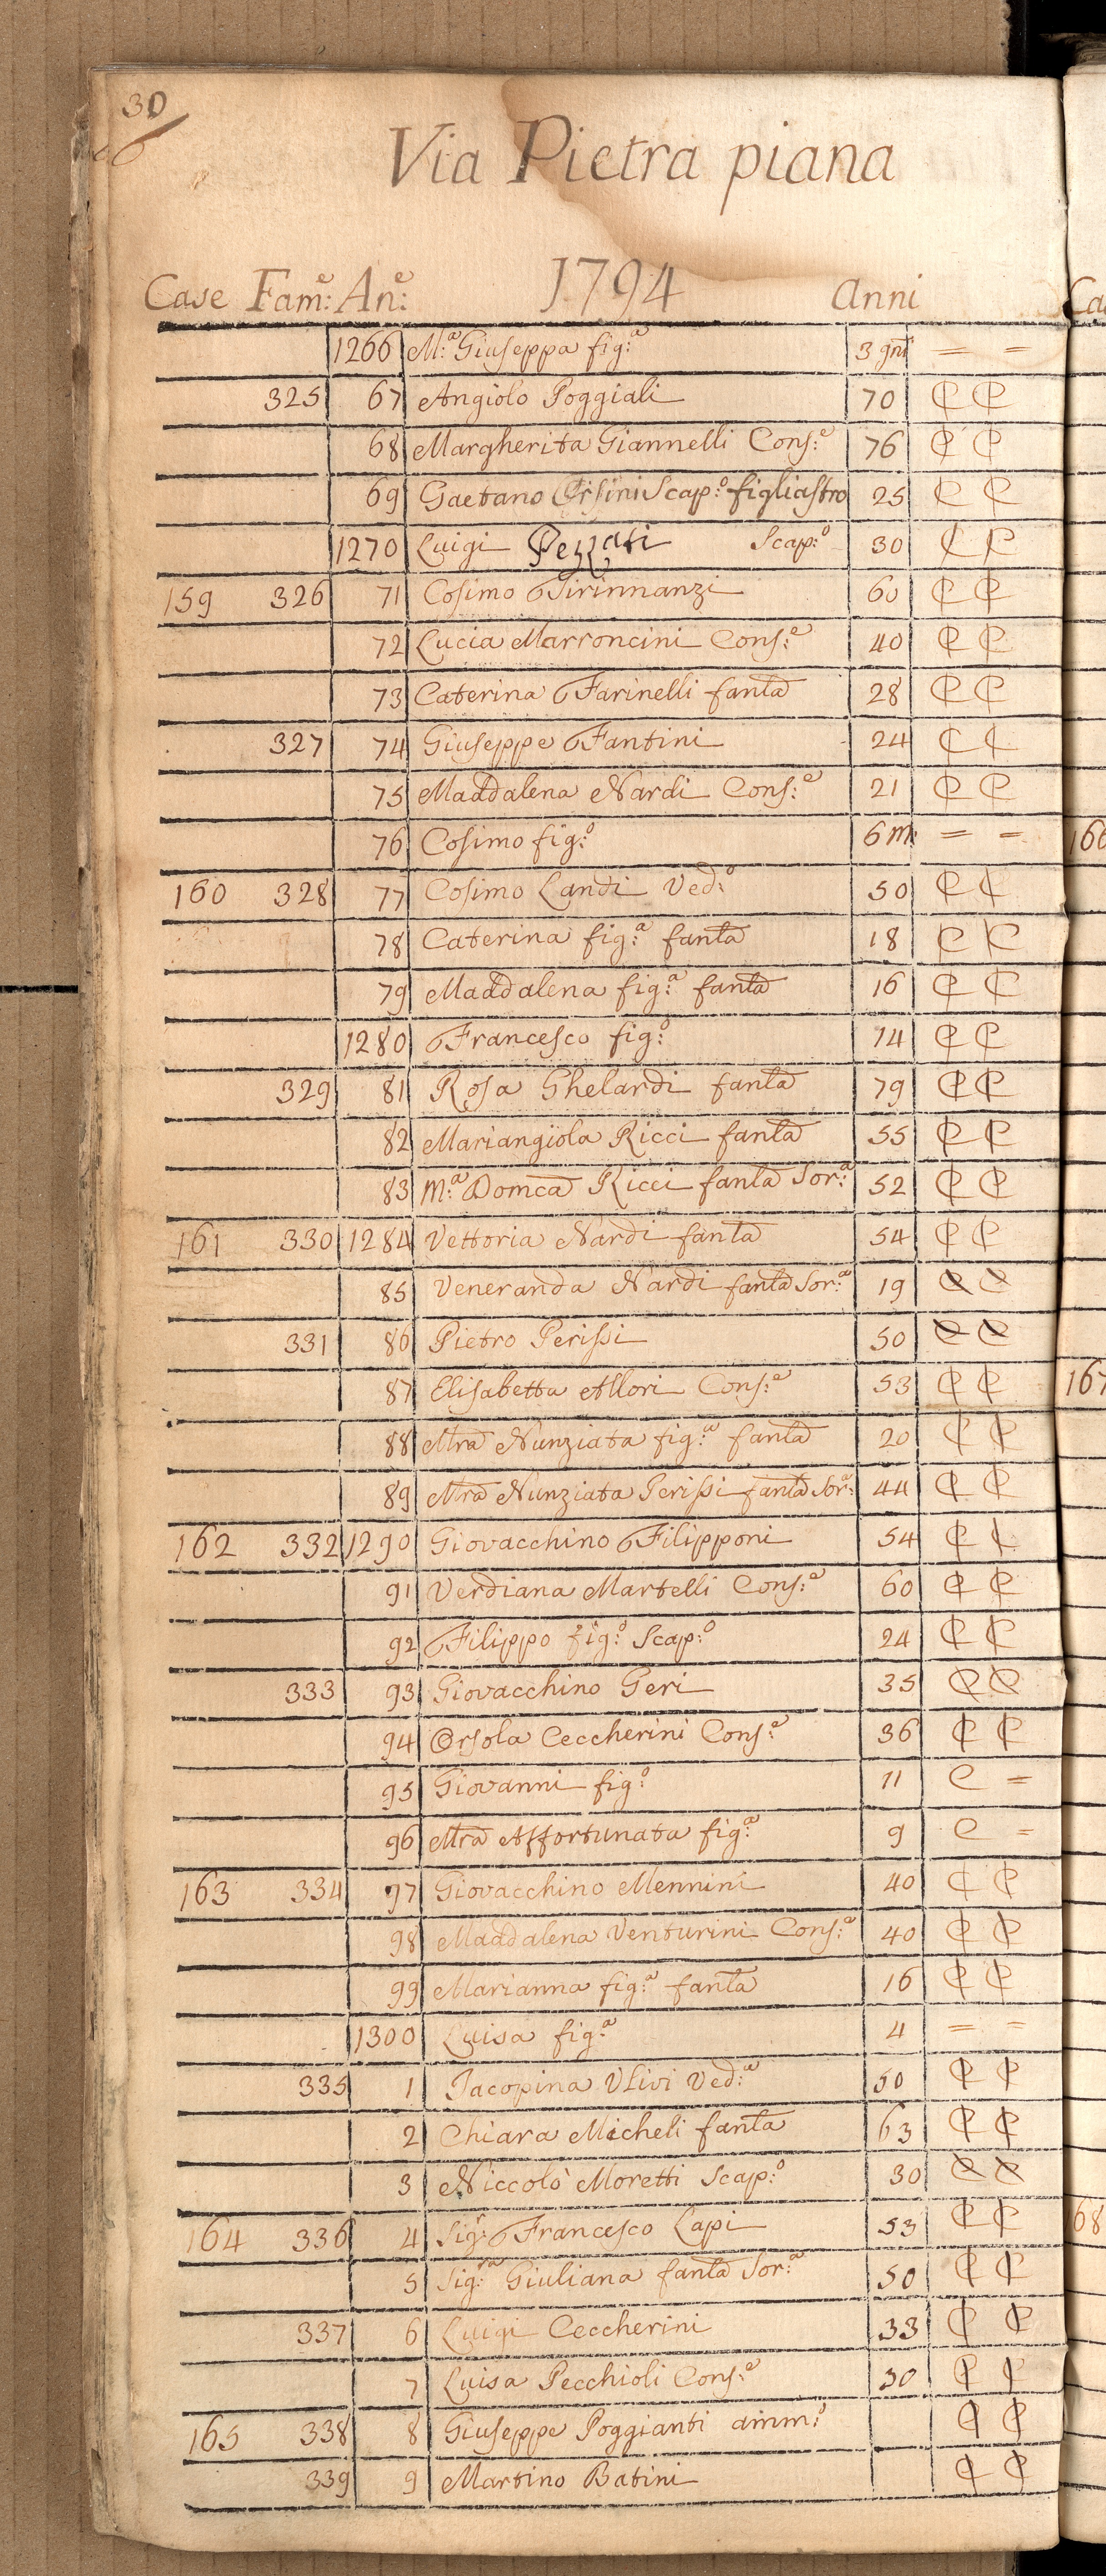 30
Via Pietra piana
Case Fam.e: An.e: 1794 Anni
1266 M.a: Giuseppa fig.a: 3 gni = =
325 67 Angiolo Poggiali 70 C C
68 Margherita Giannelli Cons.e: 76 C C
69 Gaetano Orsini Scap.o: figliastro 25 C C
1270 Luigi Pezzati Scap.o: 30 C C
159 326 71 Cosimo Tirinnanzi 60 C C
72 Lucia Marroncini Cons.e: 40 C C
73 Caterina Farinelli fanla 28 C C
327 74 Giuseppe Fantini 24 C C
75 Maddalena Nardi Cons.e: 21 C C
76 Cosimo fig.o: 6 m: = =
160 328 77 Cosimo Landi Ved.o: 50 C C
78 Caterina fig.a: fanla 18 C C
79 Maddalena fig.a: fanla 16 C C
1280 Francesco fig.o: 14 C C
329 81 Rosa Ghelardi fanla 79 C C
82 Mariangiola Ricci fanla 55 C C
83 M.a: Domca Ricci fanla Sor.a: 52 C C
161 330 1284 Vettoria Nardi fanla 54 C C
85 Veneranda Nardi fanla Sor.a: 19 C C
331 86 Pietro Perissi 50 C C
87 Elisabetta Allori Cons.e: 53 C C
88 Mra Nunziata fig.a: fanla 20 C C
89 Mra Nunziata Perissi fanla Sor.a: 44 C C
162 332 1290 Giovacchino Filipponi 54 C C
91 Verdiana Martelli Cons.e: 60 C C
92 Filippo fig.o: Scap.o: 24 C C
333 93 Giovacchino Geri 35 C C
94 Orsola Ceccherini Cons.e: 36 C C
95 Giovanni fig.o: 11 C =
96 Mra Affortunata fig.a: 9 C =
163 334 97 Giovacchino Mennini 40 C C
98 Maddalena Venturini Cons.e: 40 C C
99 Marianna fig.a: fanla 16 C C
1300 Luisa fig.a: 4 = =
335 1 Jacopina Ulivi Ved.a: 50 C C
2 Chiara Micheli fanla 63 C C
3 Niccolò Moretti Scap.o: 30 C C
164 336 4 Sig.r: Francesco Lapi 53 C C
5 Sig.ra: Giuliana fanla Sor.a: 50 C C
337 6 Luigi Ceccherini 33 C C
7 Luisa Pecchioli Cons.e: 30 C C
165 338 8 Giuseppe Poggianti amm.o: C C
339 9 Martino Batini C C